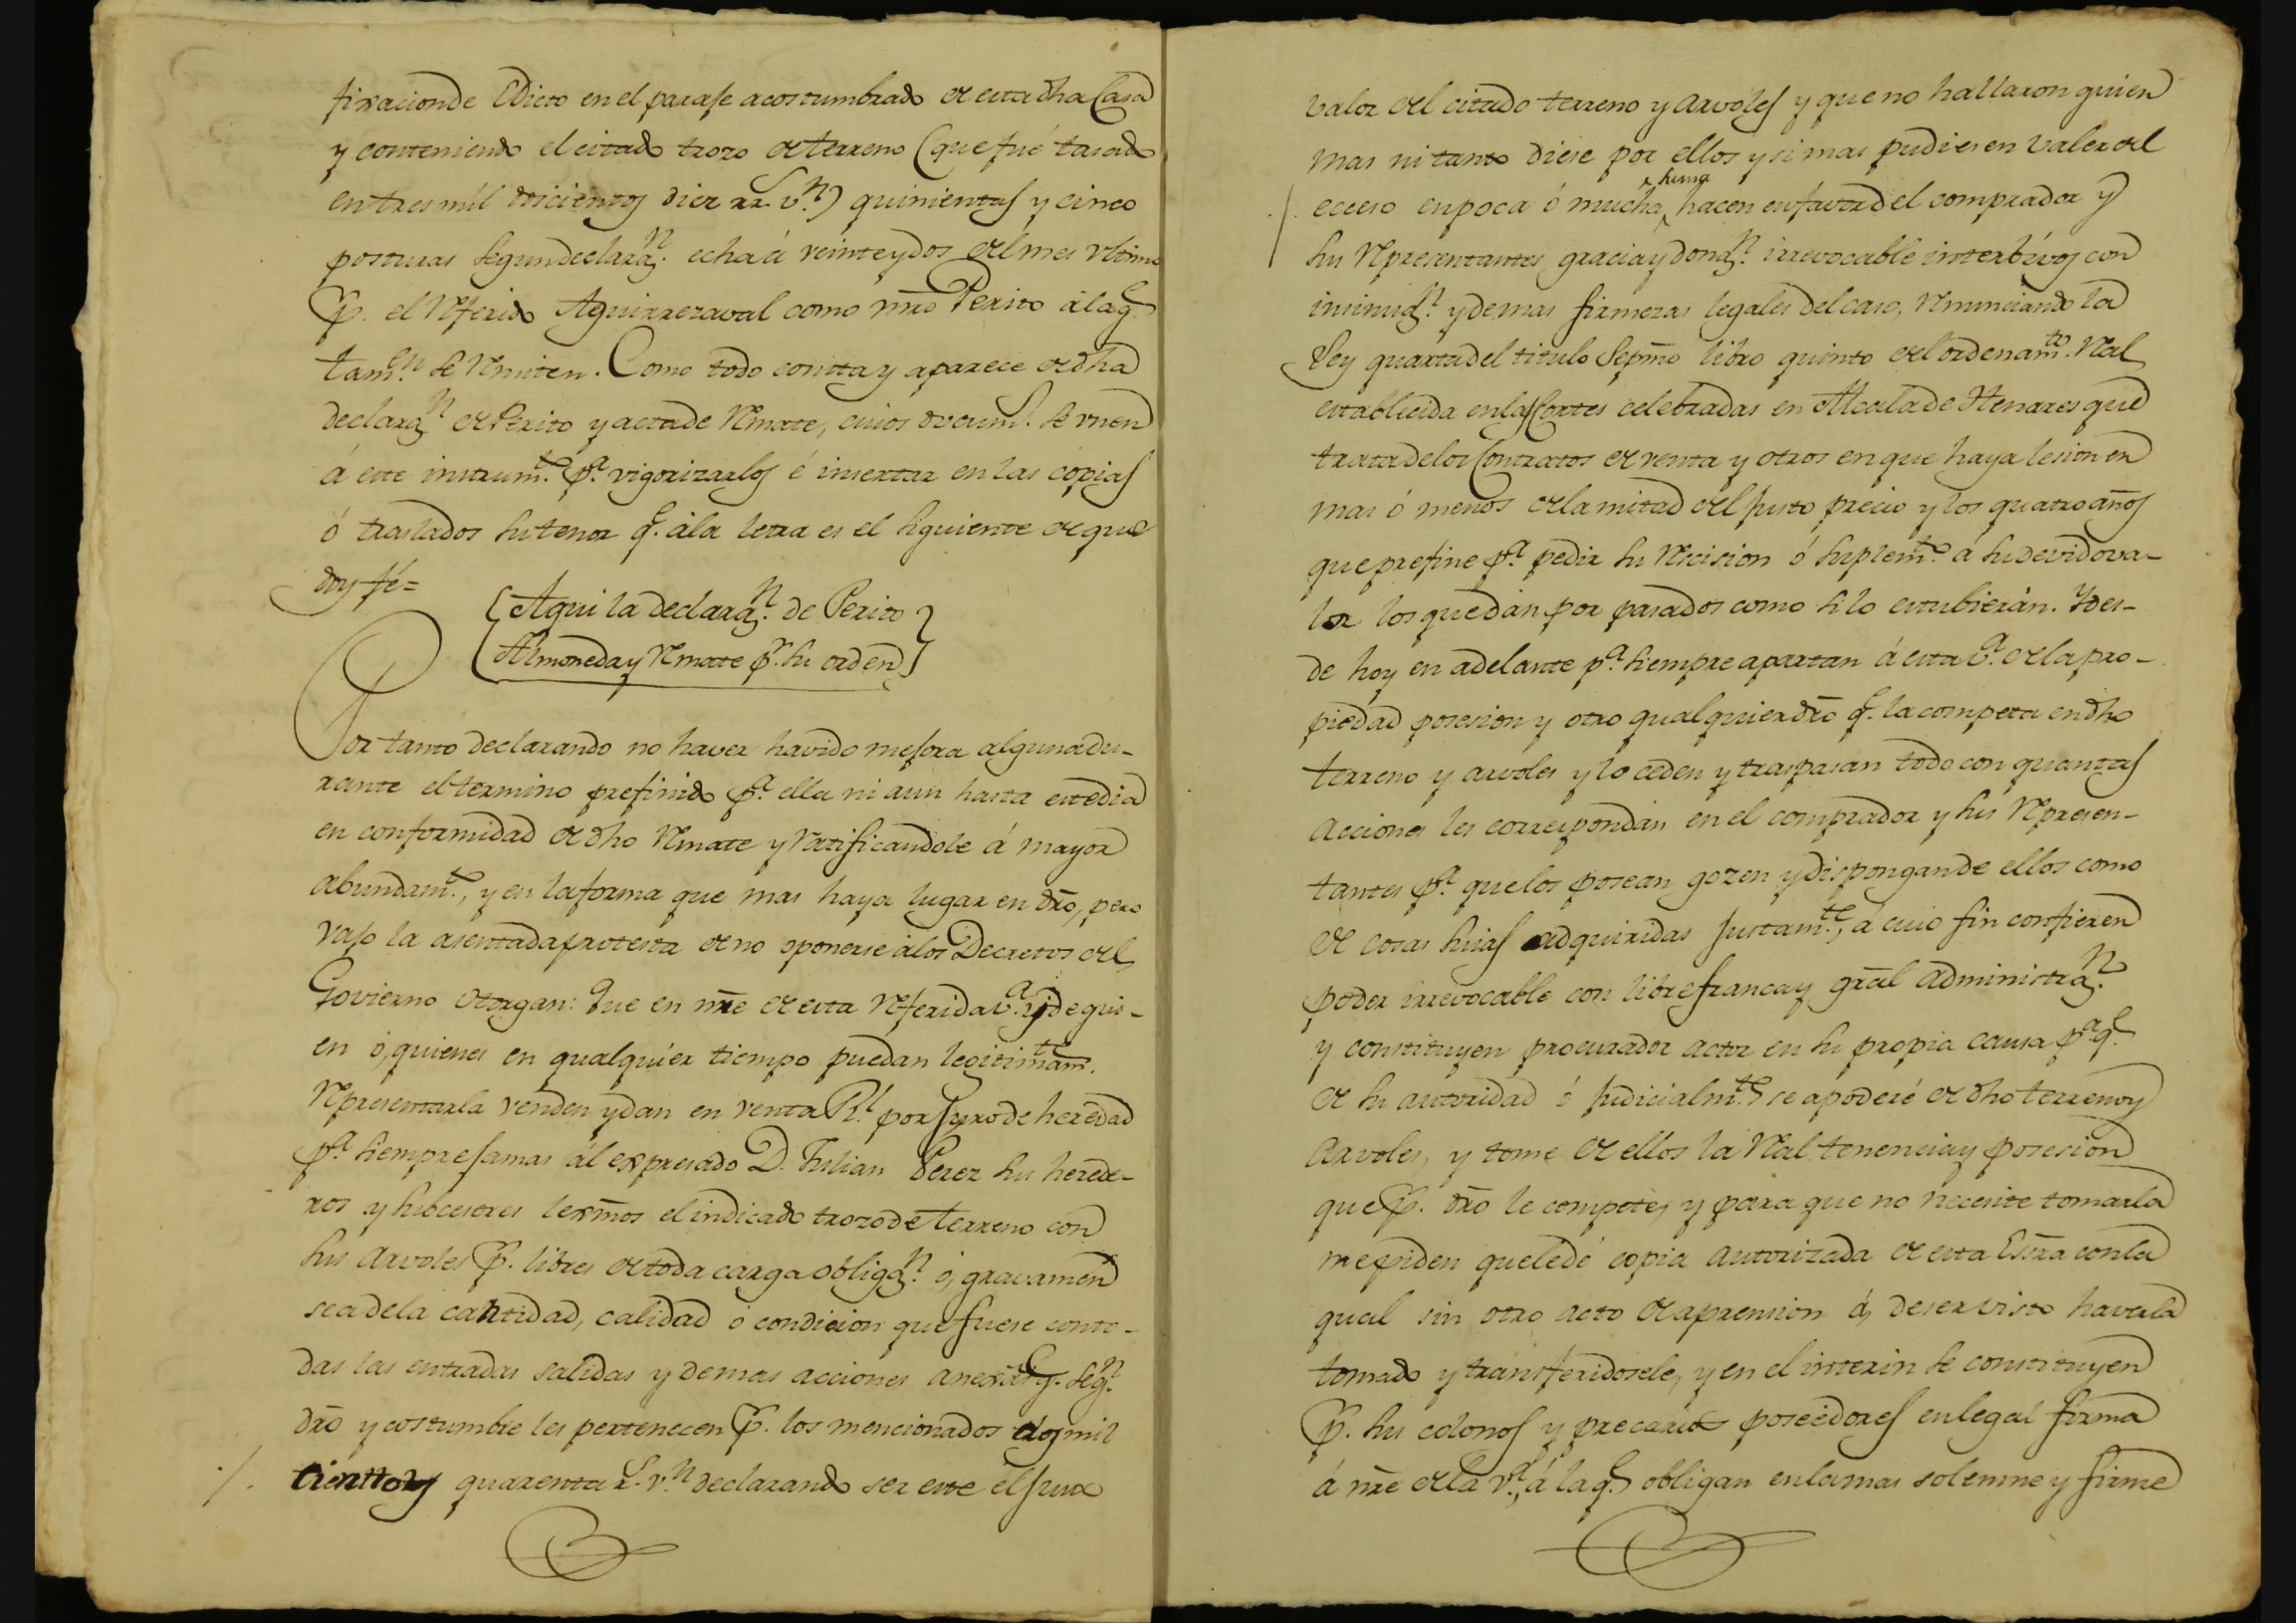 fixacion de Edicto en el paraje acostumbrado de esta dha Casa
y conteniendo el citado trozo de terreno (que fué tasado
en tres mil doscientos diez rr.s v.n) quinientas y cinco
posturas segun declaraz.n echa á veinte y dos del mes ultimo
p.r el referido Aguirrezaval como nrõ Perito á la q.e
tam.en se remiten. Como todo consta y aparece de dha
declaraz.n de Perito y acta de remate, cuios docum.s se vnen
á este instrum.to p.a vigorizarlos é insertar en las copias
ó traslados su tenor q.e á la letra es el siguiente de que
doy fé=
{Aqui la declaraz.n de Perito}
{Almoneda y remate p.r su orden}
Por tanto declarando no haver havido mejora alguna du-
rante el termino prefinido p.a ella ni aun hasta este dia
en conformidad de dho remate y ratificandole á mayor
abundam.to, y en la forma que mas haya lugar en drõ, pero
vajo la asentada protesta de no oponerse á los Decretos del
Govierno otorgan: Que en nrẽ de esta referida v.a y de qui-
en ó, quienes en qualquier tiempo puedan legitimam.te
representarla venden y dan en venta R.l por juro de heredad
p.a siempre jamas ál expresado D. Julian Perez sus herede-
ros y subcesores lexmõs el indicado trozo de terreno con
sus arvoles p.r libres de toda carga obligaz.n ó, gravamen
sea de la cantidad, calidad ó condicion que fuese con to-
das las entradas salidas y demas acciones anexas q.e seg.n
drõ y costumbre les pertenecen p.r los mencionados dos mil
./. cientto y quarenta r.s v.n declarando ser este el justo
valor del citado terreno y arvoles y que no hallaron quien
mas ni tanto diese por ellos y si mas pudiesen valer del
/. eceso en poca ó mucha suma hacen en favor del comprador y
sus representantes gracia y donaz.n irrevocable interbivos con
insinuaz.n y demas firmezas legales del caso, renunciando la
Ley quarta del titulo sepmõ libro quinto del ordenam.to real
establecida en las Cortes celebradas en Alcala de Henares que
trata de los Contratos de venta y otros en que haya lesion en
mas ó menos de la mitad del justo precio y los quatro años
que prefine p.a pedir su recision ó suplem.to á su devido va-
lor los que dan por pasados como si lo estubierán. Y des-
de hoy en adelante p.a siempre apartan á esta v.a de la pro-
piedad posesion y otro qualquier drõ q.e la competa en dho
terreno y arvoles y lo ceden y traspasan todo con quantas
acciones les correspondan en el comprador y sus represen-
tantes p.a que los posean gozen y dispongan de ellos como
de cosas suias adquiridas justam.te, á cuio fin confieren
poder irrevocable con libre franca y gral administraz.n
y constituyen procurador actor en su propia causa p.a q.e
de su autoridad ó judicialm.te se apoderé de dho terreno y
arvoles, y tome de ellos la real tenencia y posesion
que p.r drõ le compete, y para que no necesite tomarla
me piden que le dé copia autorizada de esta Essrã con la
qual sin otro acto de aprension á, de ser visto haverla
tomado y transferidosele, y en el interin se constituyen
p.r sus colonos y precarios poseedores en legal forma
á nrẽ de la v.a, á la q.e obligan en la mas solemne y firme